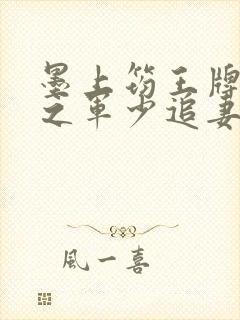 墨上筠王牌
之军少追妻
風一喜